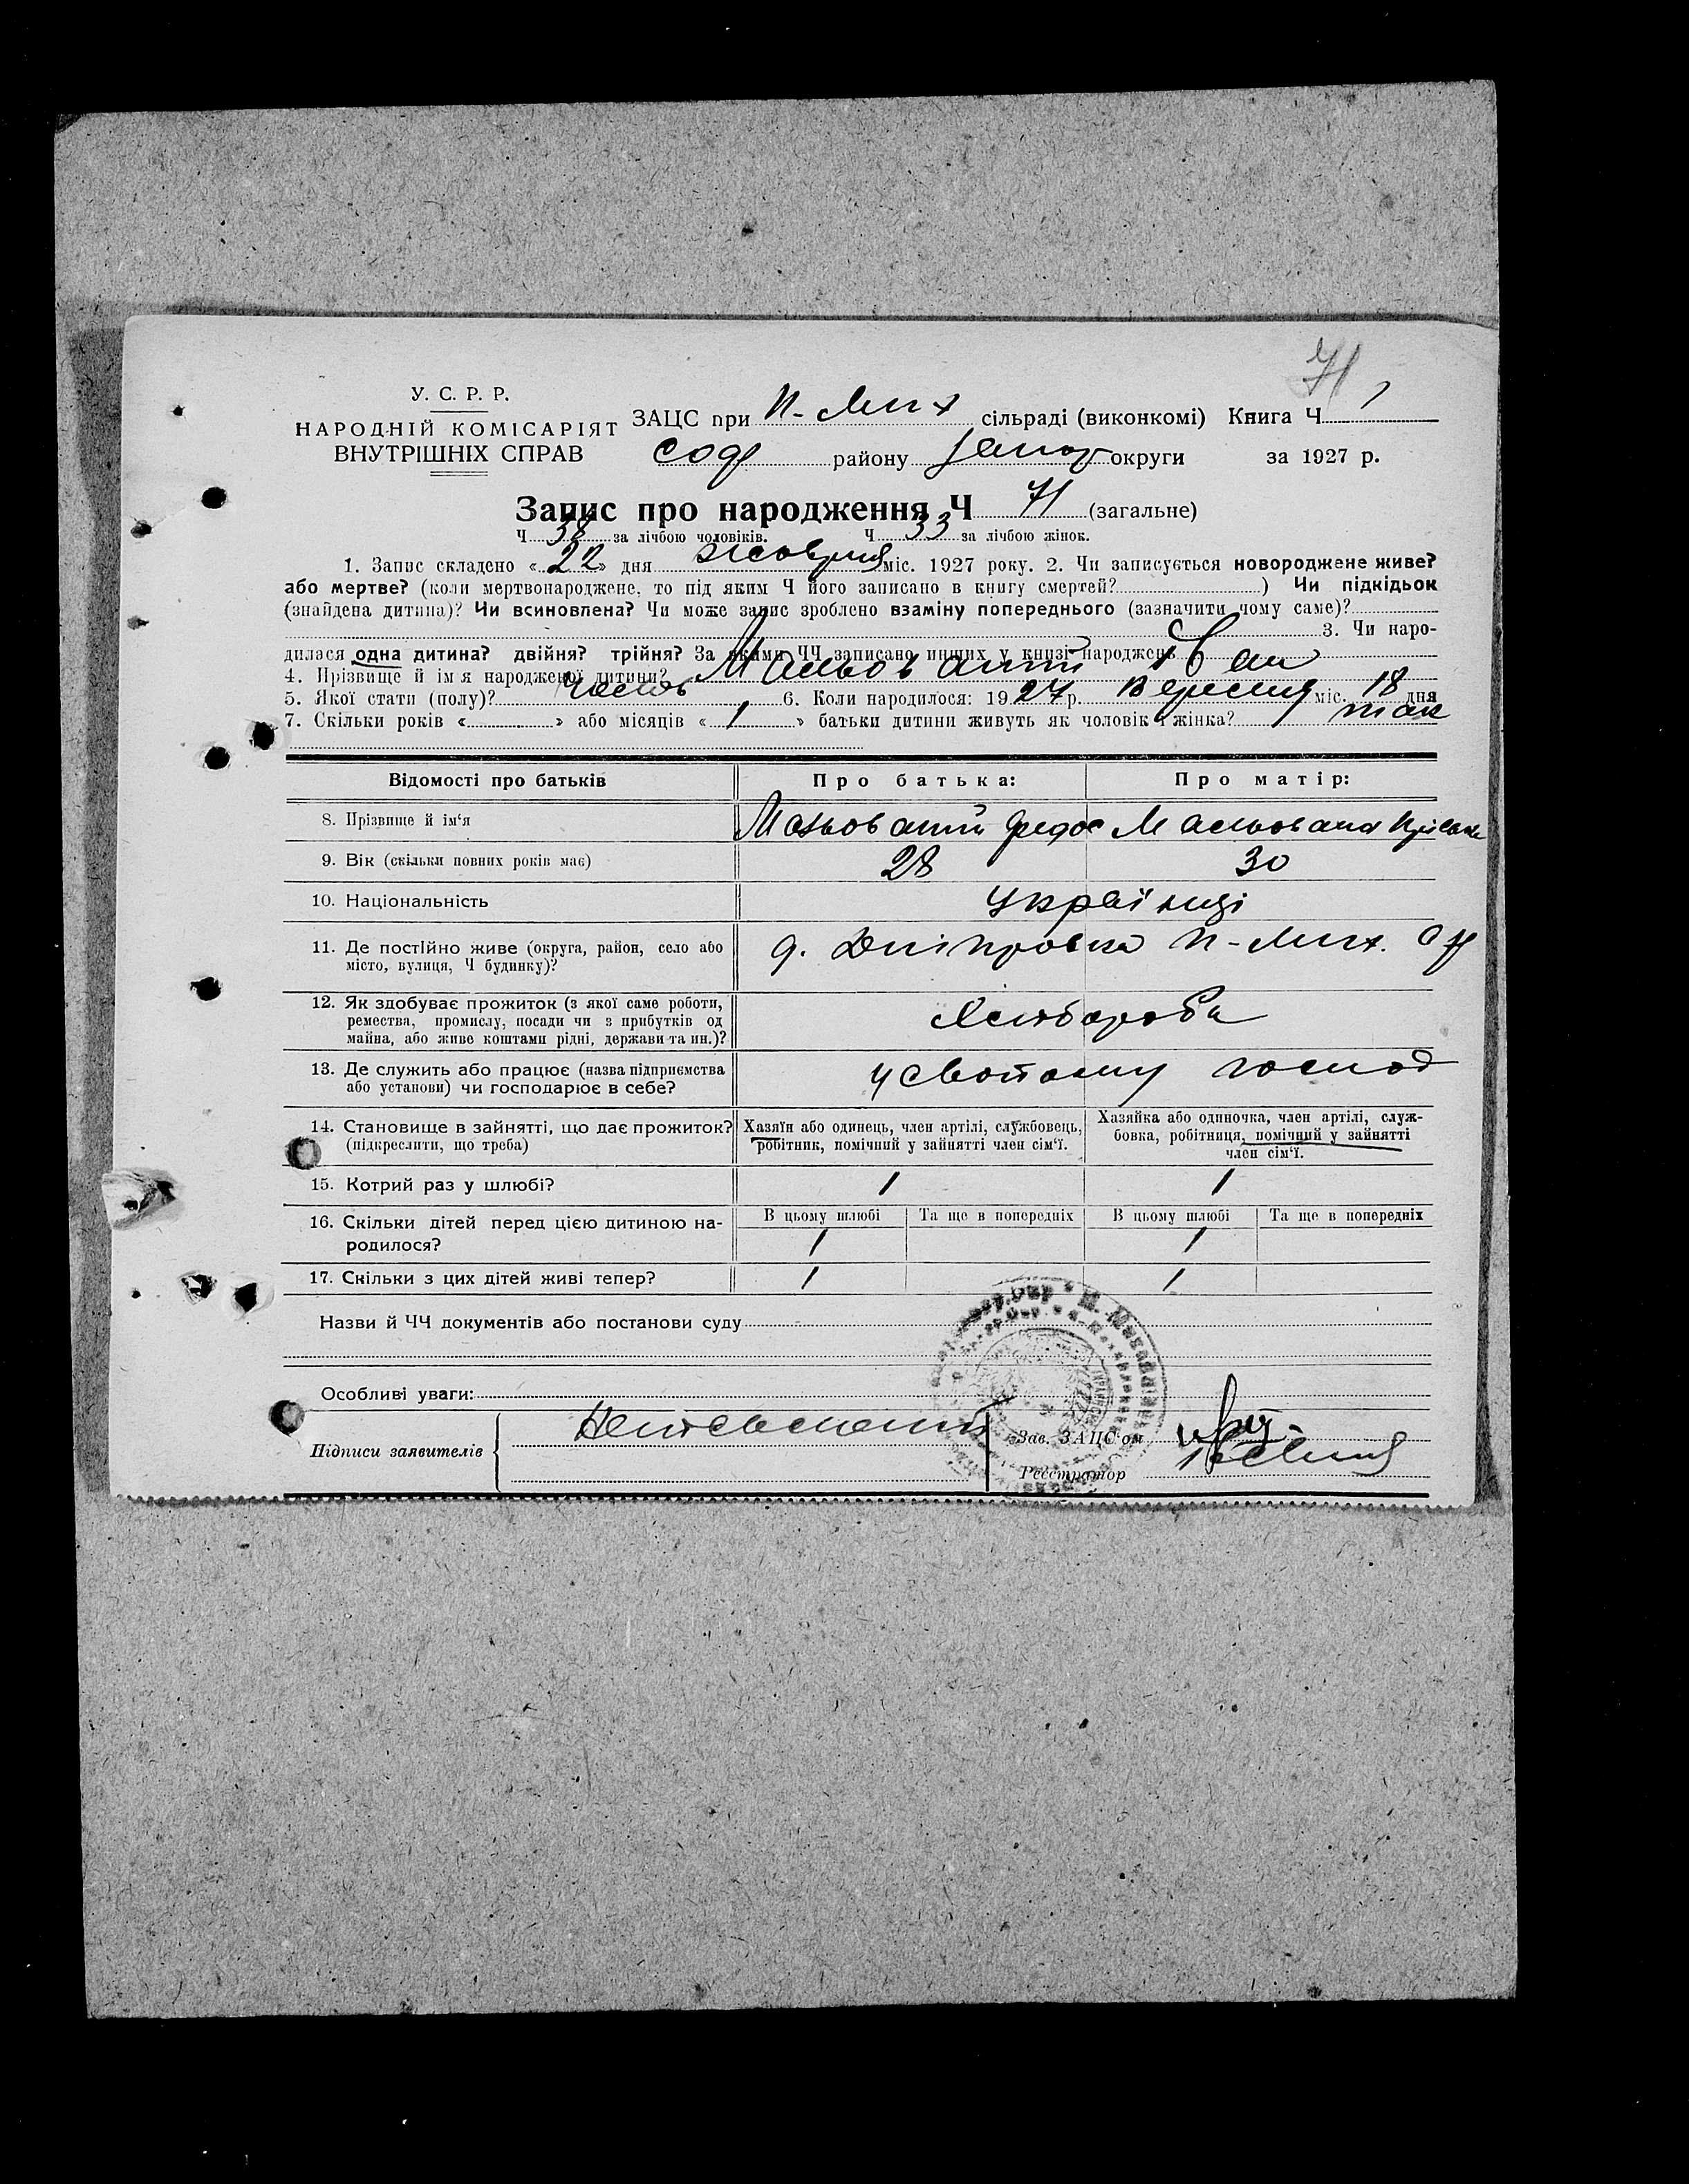 71
У. С. Р. Р.
НАРОДНІЙ КОМІСАРІЯТ
ВНУТРІШНІХ СПРАВ
ЗАЦС при сільраді (виконкомі) Книга Ч 1
району Запор округи за 1927 р.
Запис про народження Ч 71 (загальне)
Ч 38 за лічбою чоловіків. Ч 33 за лічбою жінок.
1. Запис складено «22» дня жовтня міс. 1927 року. 2. Чи записується новороджене живе?
або мертве? (коли мертвонароджене, то під яким Ч його записано в книгу смертей?) Чи підкідьок
(знайдена дитина)? Чи всиновлена? Чи може запис зроблено взаміну попереднього (зазначити чому саме)?
3. Чи наро-
дилася одна дитина? двійня? трійня? За якими ЧЧ записано инших у книзі народжень
4. Прізвище й ім я народженої дитини? Мальований Іван
5. Якої стати (полу)? 6. Коли народилося: 1927 р. Вересня міс. 18 дня
7. Скільки років « » або місяців « 1 » батьки дитини живуть як чоловік і жінка? так
Відомості про батьків Про батька: Про матір:
8. Прізвище й ім‘я Мальований Федос Мальована
9. Вік (скільки повних років має) 28 30
10. Національність Українці
11. Де постійно живе (округа, район, село або
місто, вулиця, Ч будинку)?
Дніпровка
12. Як здобуває прожиток (з якої саме роботи,
ремества, промислу, посади чи з прибутків од
майна, або живе коштами рідні, держави та ин.)?
Хлібороби
13. Де служить або працює (назва підприємства
або установи) чи господарює в себе?
у свойому господ
14. Становище в зайнятті, що дає прожиток?
(підкреслити, що треба)
Хазяїн або одинець, член артілі, службовець,
робітник, помічний у зайнятті член сім‘ї.
Хазяйка або одиночка, член артілі, служ-
бовка, робітниця, помічний у зайнятті
член сім‘ї.
15. Котрий раз у шлюбі? 1 1
16. Скільки дітей перед цією дитиною на-
родилося?
В цьому шлюбі Та ще в попередніх В цьому шлюбі Та ще в попередніх
1 1
17. Скільки з цих дітей живі тепер? 1 1
Назви й ЧЧ документів або постанови суду
Особливі уваги:
Підписи заявителів
Зав. ЗАЦС‘ом
Реєстратор